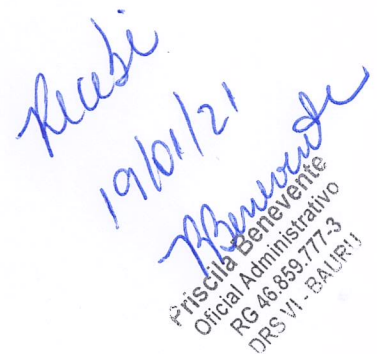 Recebi
19/01/21
PBenevente
Priscila Benevente
Oficial Administrativo
RG 46.859.777-3
DRS VI - BAURU